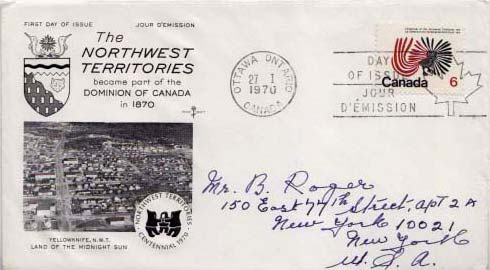 FIRST DAY OF ISSUE JOUR D'EMISSION
The
NORTHWEST
TERRITORIES
became part of the
DOMINION OF CANADA
in 1870
OTTAWA ONTARIO
27 I
1970
CANADA
DAY
OF ISSUE
JOUR
D'EMISSION
Canada 6
NORTHWEST TERRITORIES
CENTENNIAL 1970
YELLOWKNIFE, N.W.T.
LAND OF THE MIDNIGHT SUN
Mr. B. Roger
150 East 74th Street, apt 2A
New York 10021
New York
U.S.A.